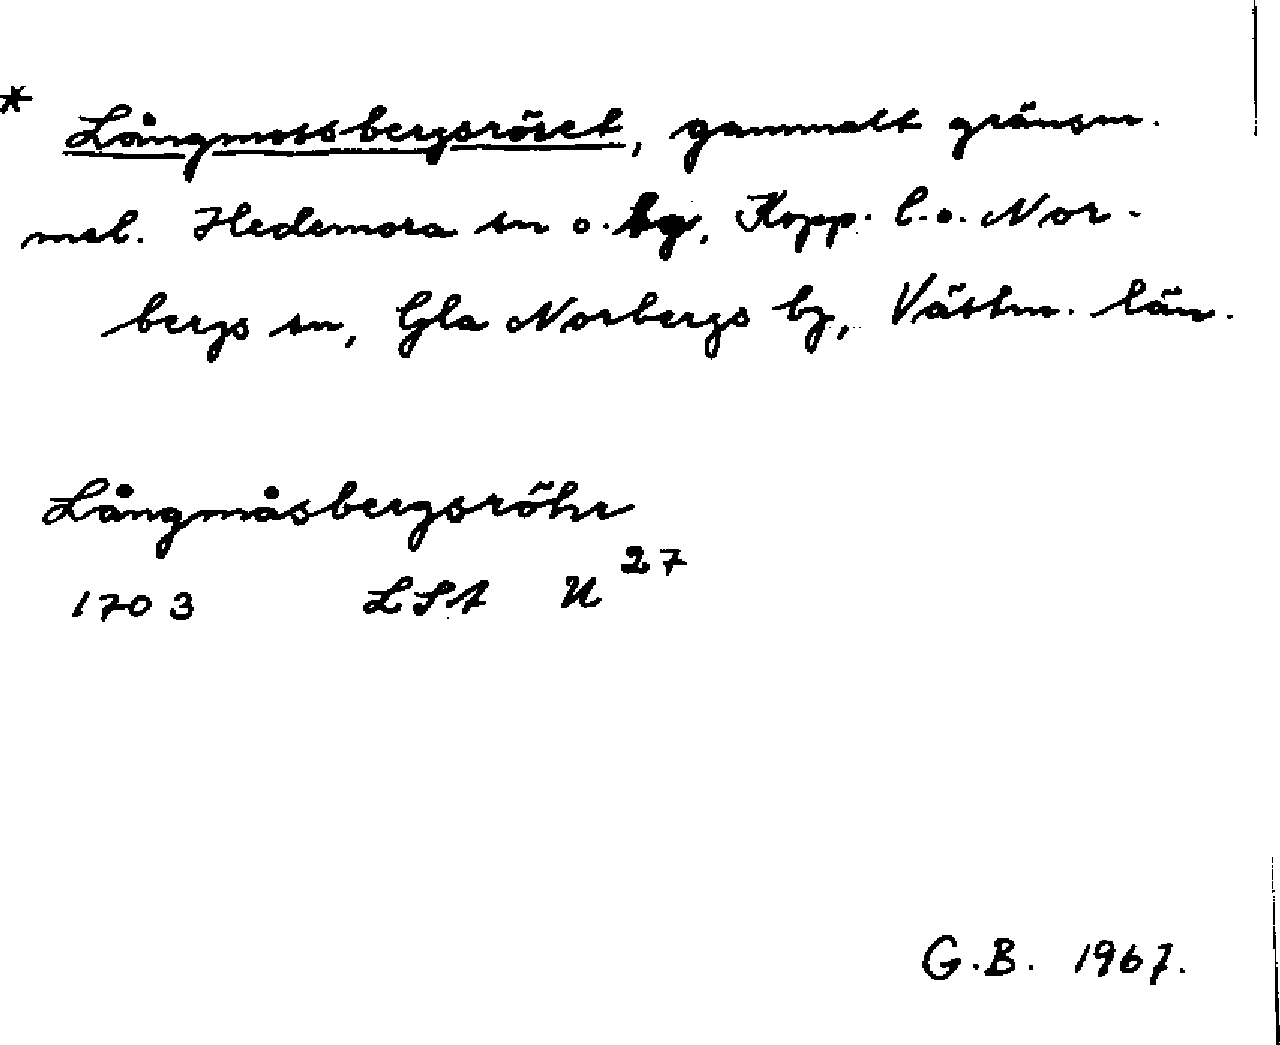 * Långmossbergsröset, gammalt gränsm.
mel. Hedemora sn o. hg, Kopp. l. o. Nor-
bergs sn, Gla Norbergs bg, Västm. län.
Långmåsbergsröhr
1703 LSA U 27
G.B. 1967.